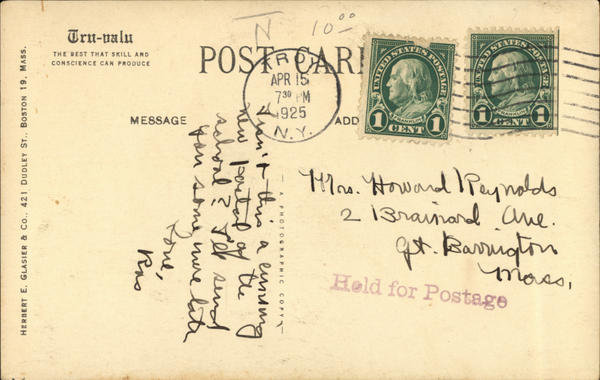 Tru-valu
THE BEST THAT SKILL AND
CONSCIENCE CAN PRODUCE
N 10.00
POST CAR
TROY
APR 15
7 30 PM
1925
N.Y.
UNITED STATES POSTAGE
FRANKLIN
1 CENT 1
UNITED STATES POSTAGE
FRANKLIN
1 CENT 1
MESSAGE
ADD
Isn't this a cunning
new postal of the
school? I'll send
you some more later
Love,
Mrs. Howard Reynolds
2 Brainard Ave.
Gt. Barrington
Mass.
Held for Postage
— A PHOTOGRAPHIC COPY —
HERBERT E. GLASIER & CO., 421 DUDLEY ST., BOSTON 19, MASS.